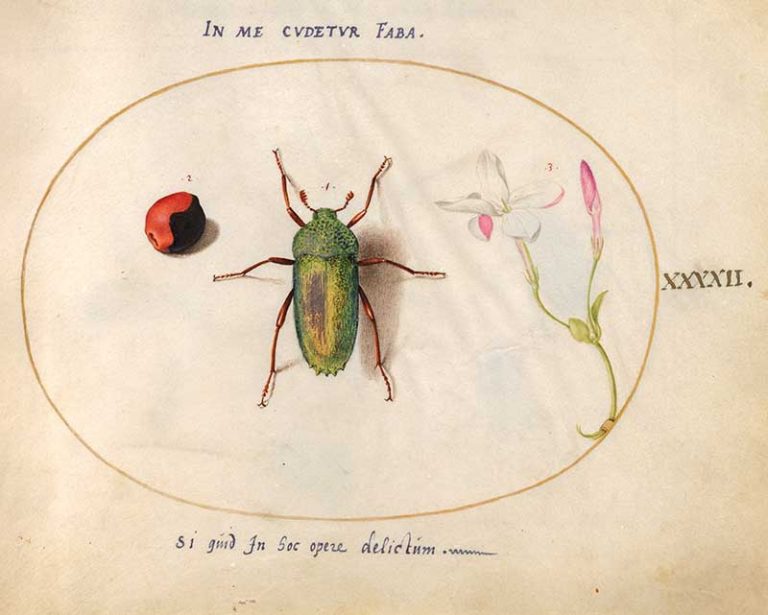 IN ME CVDETVR FABA.
2
1
3.
XXXXII.
Si quid In hoc opere delictum.